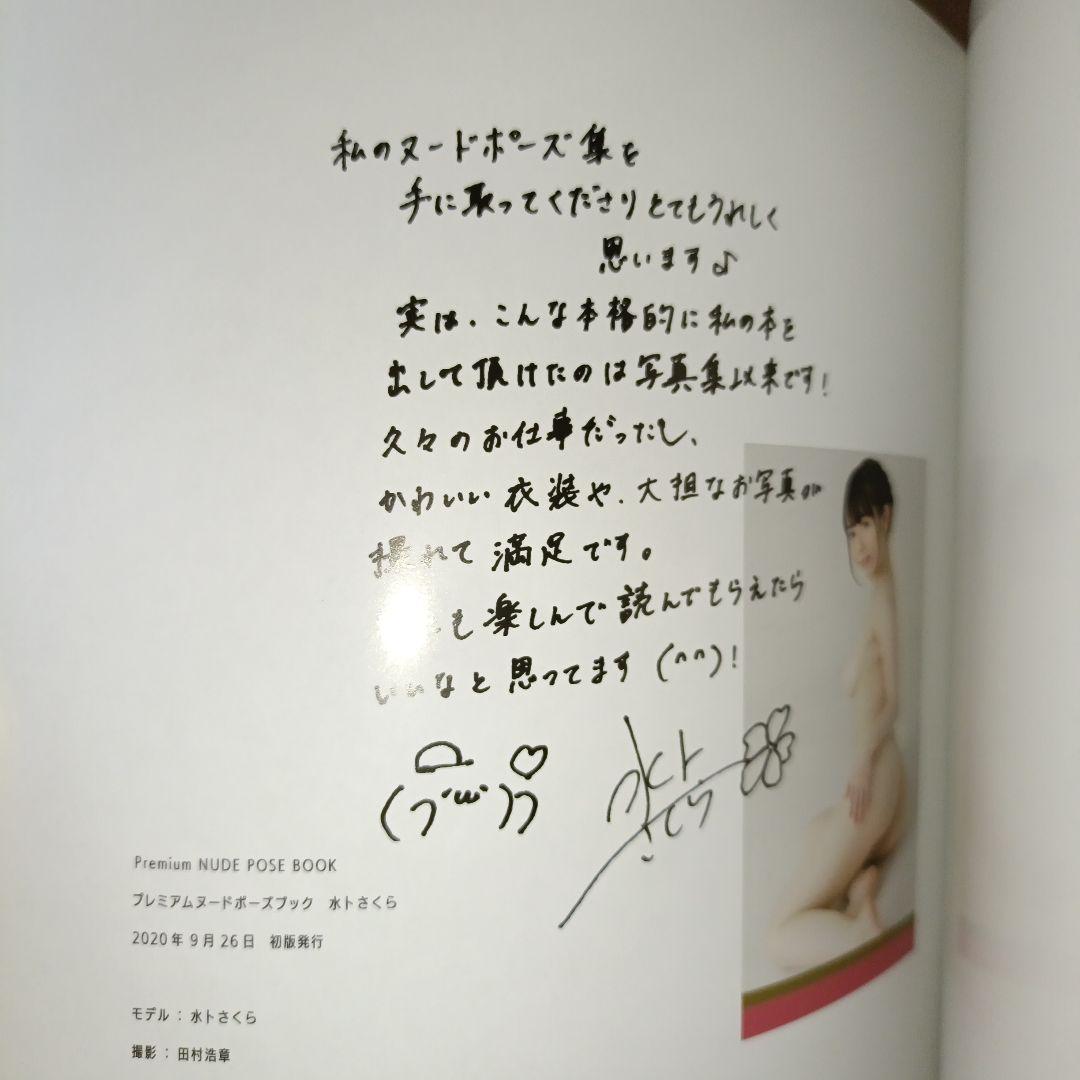 私のヌードポーズ集を
手に取ってくださりとてもうれしく
思います♪
実は、こんな本格的に私の本を
出して頂けたのは写真集以来です!
久々のお仕事だったし、
かわいい衣装や、大担なお写真が
撮れて満足です。
も楽しんで読んでもらえたら
いいなと思ってます(^^)!
水トさくら
Premium NUDE POSE BOOK
プレミアムヌードポーズブック 水トさくら
2020年9月26日 初版発行
モデル:水トさくら
撮影:田村浩章